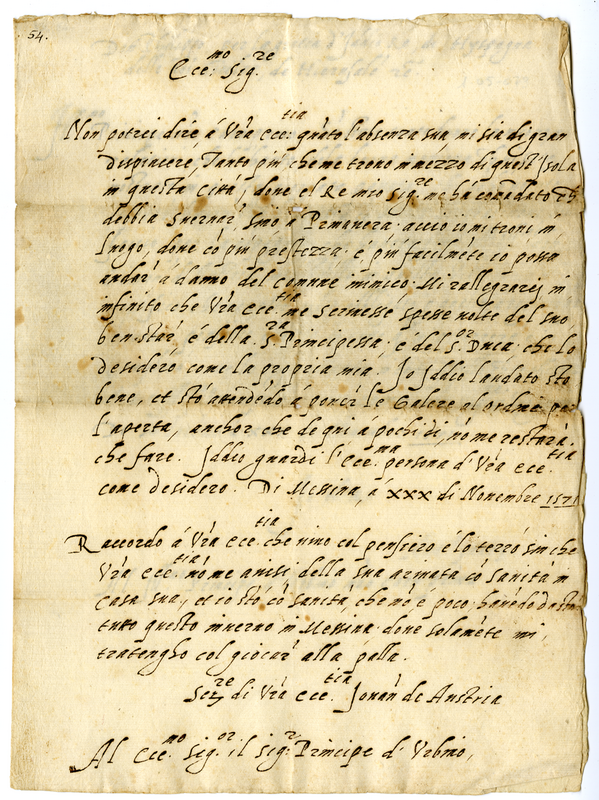 54.
Ecc:mo Sig.re
Non potrei dire á Vra ecc:tia quáto l'absenza sua, mi sia di gran
dispiacere, Tanto piu che me trovo in mezzo di quest'Isola
in questa Città, dove el Re mio Sig.re me há comãdato
debbia Svernar, Sino, a Primavera: acció io mi trovi in,
luogo, dove có piú prestezza: é, piú facilméte io possa
andar á danno del comune inimico; Mi rallegrarej in
infinito che Vra Ecc.tia me scrivesse spesse volte del suo,
ben star, é della S.ra Principessa: é del S.or Duca: che lo
desideró, come la propria mia. Io Iddio laudato sto
bene, et stó attédédo á ponér le Galere al ordine per
l'aperta, anchor che de qui a pochi dí, nó me restará.
che fare. Iddio guardi l'ecc.ma persona d'Vra ecc.tia
come desidero. Di Messina, á XXX di Novembre 1571
Raccordo á Vra ecc.tia che vivo col pensiero é lo terró sin che
Vra Ecc.tia nó me avisi della sua arivata có sanitá in
casa sua, et io stó có sanitá, che nó é poco: havédo
tutto questo inverno in Messina: dove solaméte mi,
tratengho col giocar alla palla.
Ser.re di Vra ecc.tia Jovan de Austria
Al Ecc.mo Sig.or il Sig.r Principe d'Vrbino,